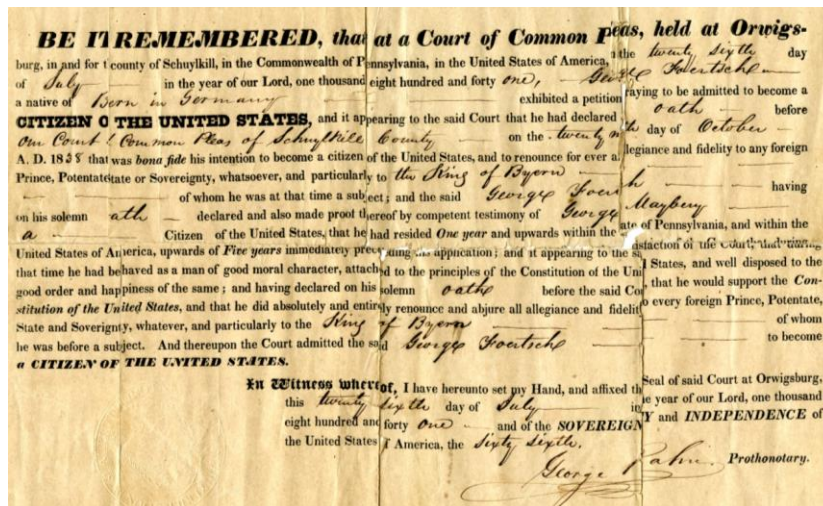 BE IT REMEMBERED, that at a Court of Common Peas, held at Orwigs-
burg, in and for t county of Schuylkill, in the Commonwealth of Pennsylvania, in the United States of America, the twenty sixth day
of July in the year of our Lord, one thousand eight hundred and forty one, George Foertsch
a native of Born in Germany exhibited a petition raying to be admitted to become a
CITIZEN O THE UNITED STATES, and it appearing to the said Court that he had declared oath before
our Court Common Pleas of Schuylkill County on the twenty day of October
A. D. 1838 that was bona fide his intention to become a citizen of the United States, and to renounce for ever al legiance and fidelity to any foreign
Prince, Potentate State or Sovereignty, whatsoever, and particularly to the King of Byern
of whom he was at that time a subject; and the said George having
on his solemn oath declared and also made proof thereof by competent testimony of George Mayberry
a Citizen of the United States, that he had resided One year and upwards within the ate of Pennsylvania, and within the
United States of America, upwards of Five years immediately preceding his application; and it appearing to the satisfaction of the Court, that during
that time he had behaved as a man of good moral character, attached to the principles of the Constitution of the Uni States, and well disposed to the
good order and happiness of the same; and having declared on his solemn oath before the said Co , that he would support the Con-
stitution of the United States, and that he did absolutely and entirely renounce and abjure all allegiance and fidelit o every foreign Prince, Potentate,
State and Soverignty, whatever, and particularly to the King of Byern of whom
he was before a subject. And thereupon the Court admitted the said George Foertsch to become
a CITIZEN OF THE UNITED STATES.
In Witness whereof, I have hereunto set my Hand, and affixed th Seal of said Court at Orwigsburg,
this twenty sixth day of July in e year of our Lord, one thousand
eight hundred and forty one and of the SOVEREIGN Y and INDEPENDENCE of
the United States of America, the Sixty Sixth.
George Rahn. Prothonotary.